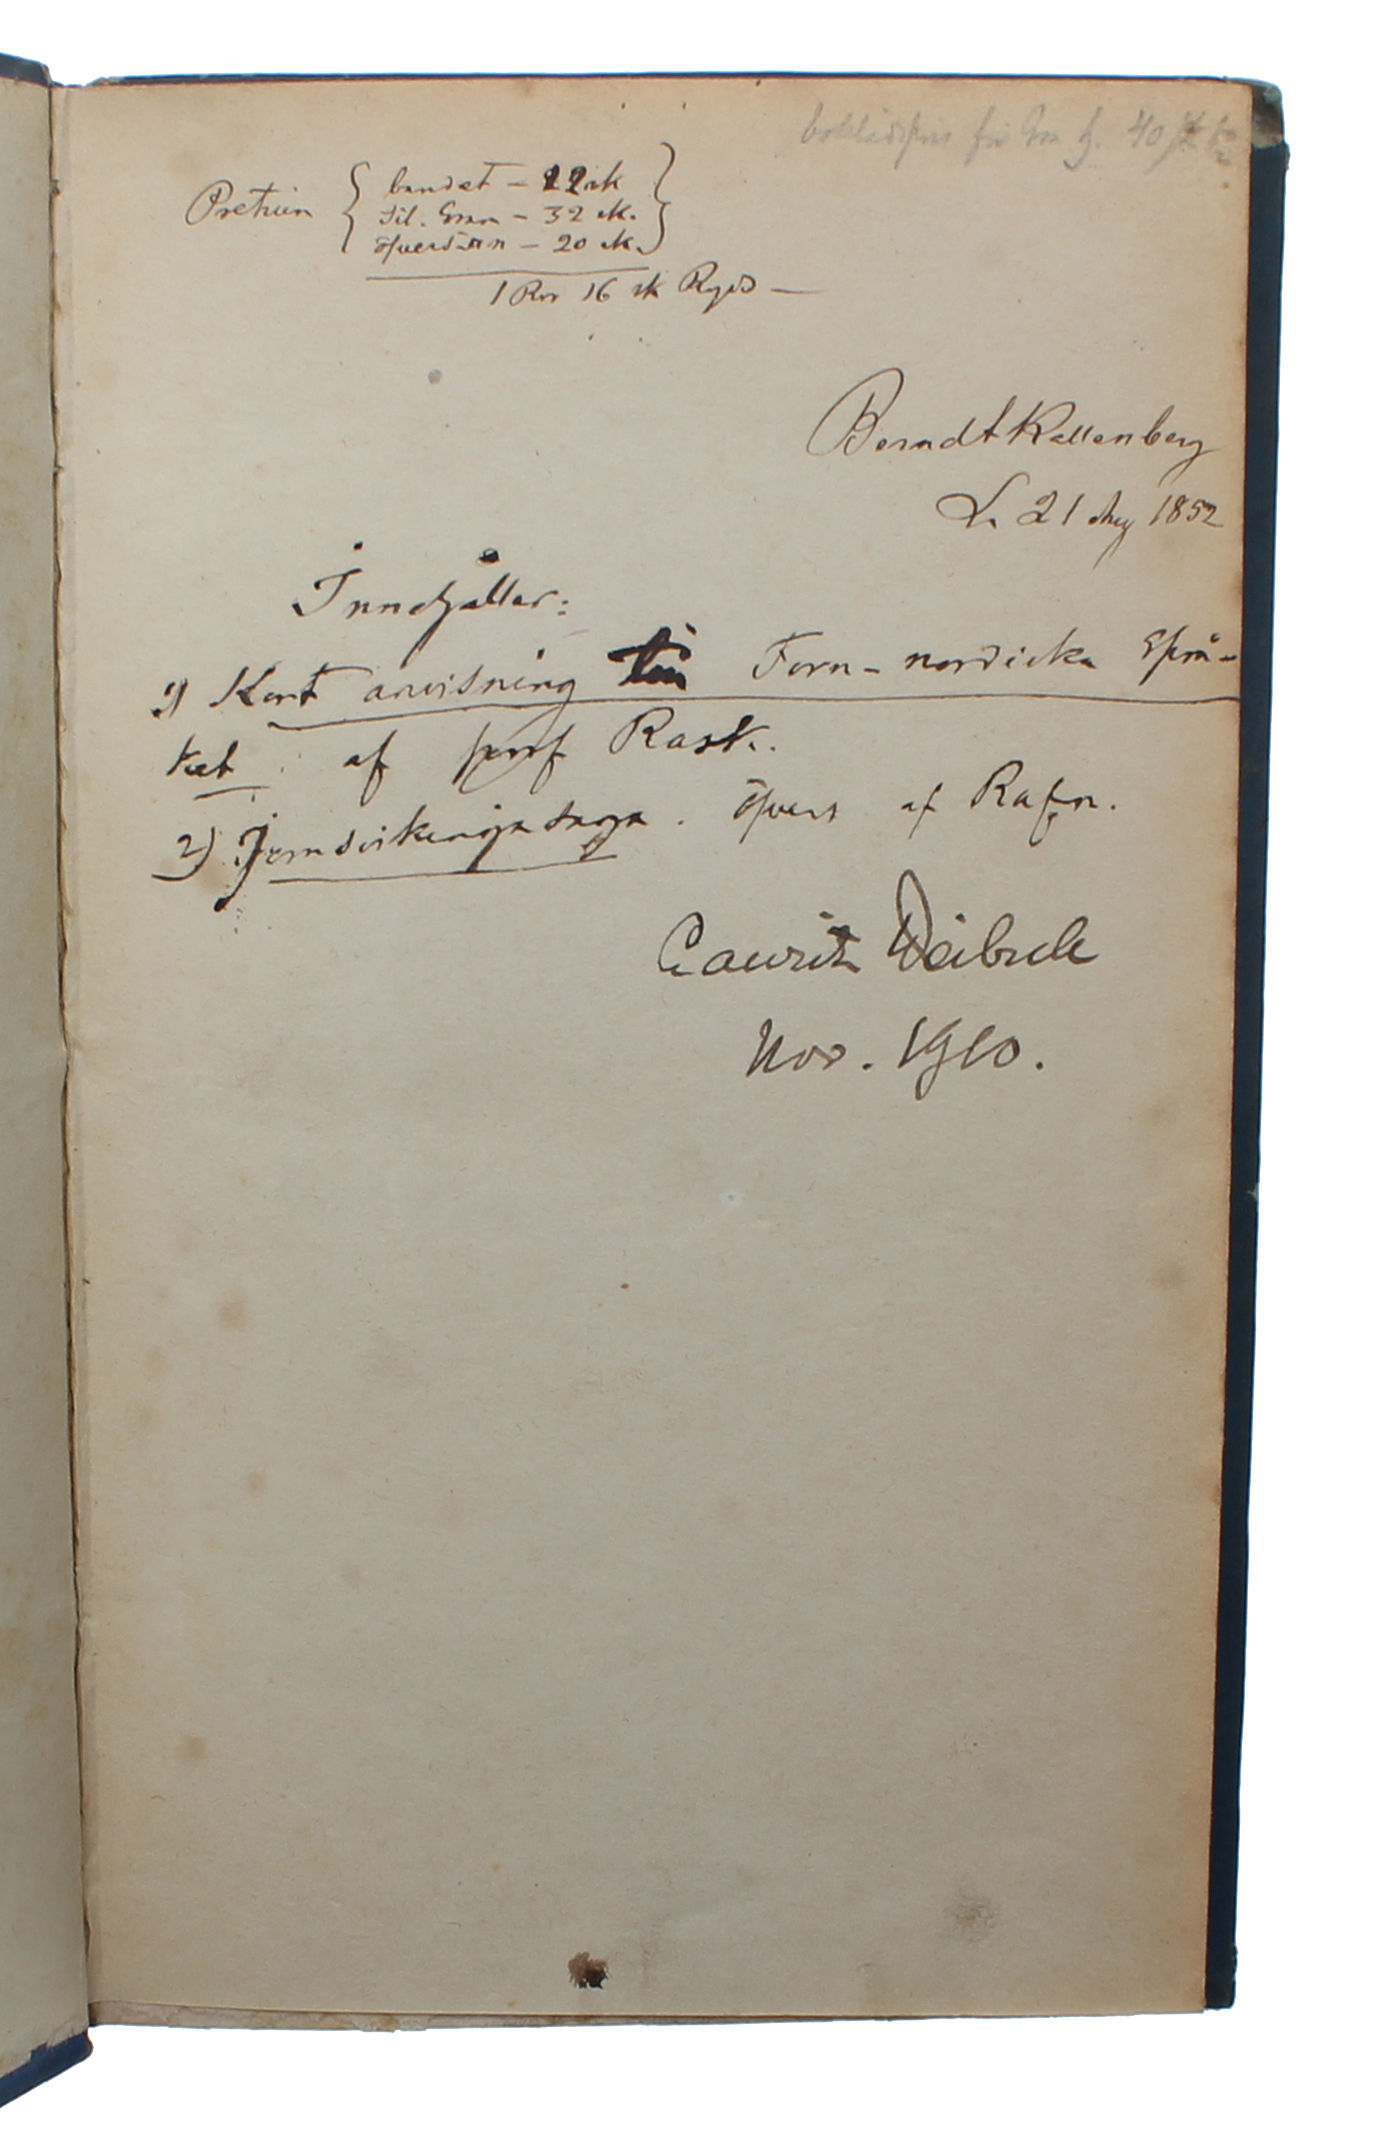 Pretium { bundet – 22 sk
Til. Gram – 32 sk.
öfversätn – 20 sk. }
1 Rdr 16 sk Rgds –
Berndt Kallenberg
L. 21 Aug 1852
Innehåller:
1) Kort anvisning till Forn-nordiska Språ-
ket. af prof Rask.
2) Jomsvikingasaga. öfvers af Rafn.
Lauritz Weibull
Nov. 1910.